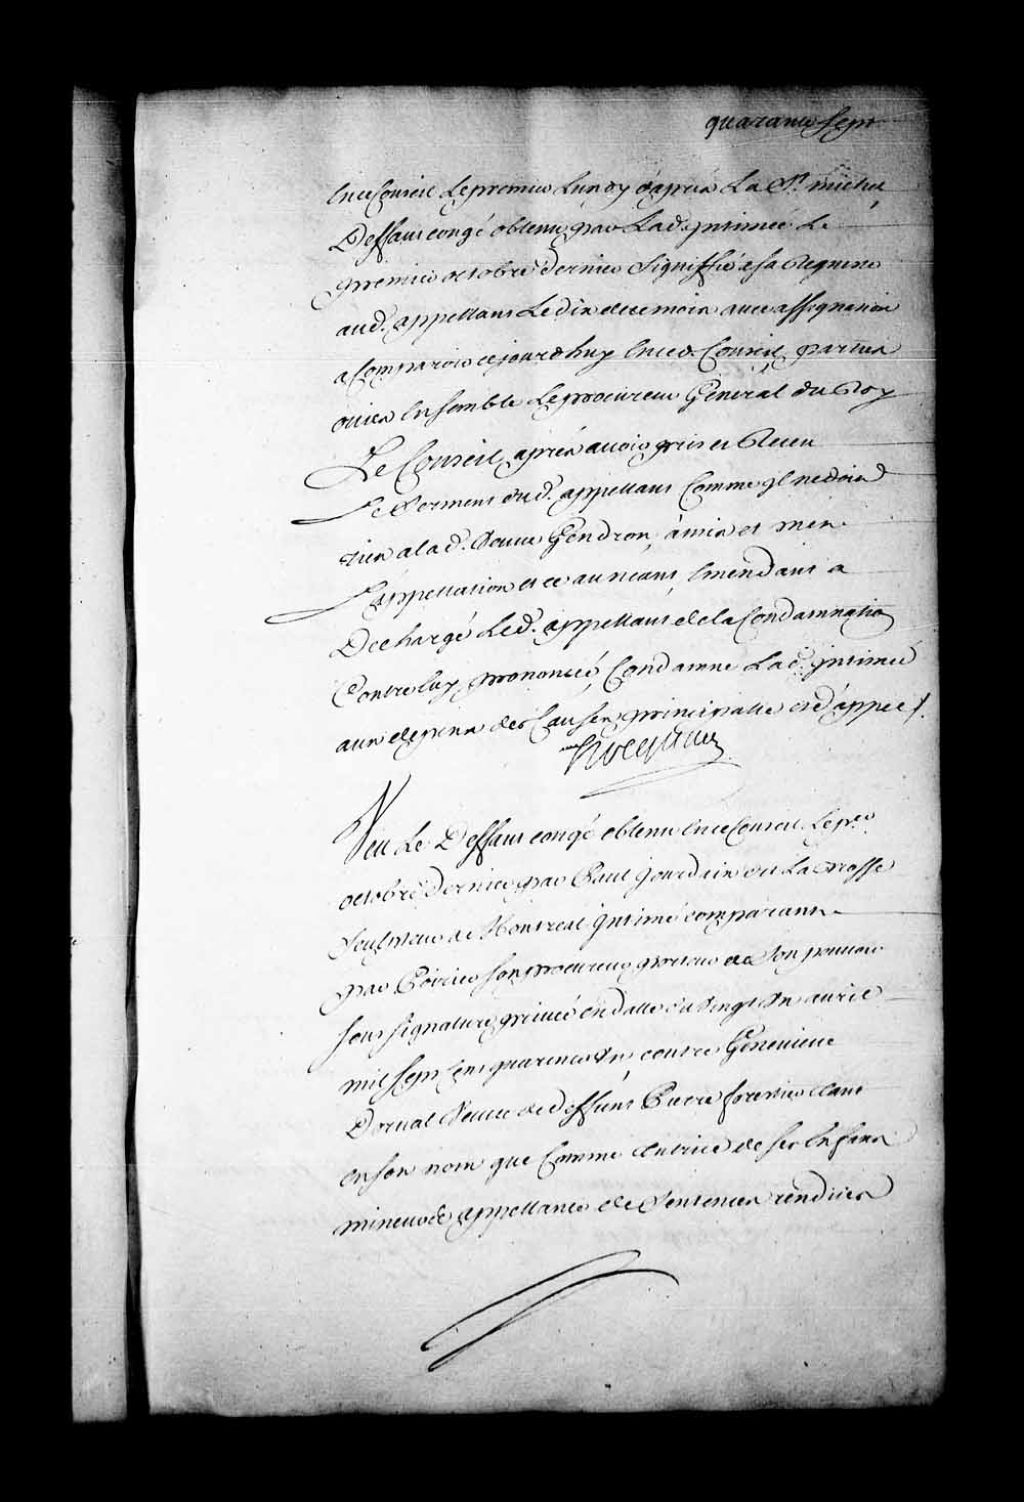 quarante sept
en ce Conseil le premier lundy d'aprés La St. michel
Deffaut congé obtenu par Lad. intimée le
premier octobre dernier signiffié a sa Requeste
aud. appellant le dix de ce mois avec assignation
a Comparoir cejourdhuy en ced. Conseil, parties
ouies ensemble le procureur General du Roy
Le Conseil aprés avoir pris et Receu
le serment dud. appellant Comme il ne doit
rien a lad. veuve Gendron, à mis et met
l'appellation et ce au neant, emendant a
Dechargé led. appellant de la Condamnation
Contre luy prononcée, Condamne Lad. intimée
aux depens des Causes principalle et d'appel
Hocquart
Veu Le Deffaut congé obtenu en ce Conseil le pr.er
octobre dernier par Paul Jourdain dit La Brosse
sculpteur de Montreal intimé comparant
par Poirier son procureur porteur de son pouvoir
sous signature privée en datte du vingt un avril
mil sept cent quarente un, contre Genevieve
Dorval veuve de deffunt Pierre forestier tant
en son nom que Comme tutrice de ses enfans
mineurs appellante de Sentences rendües